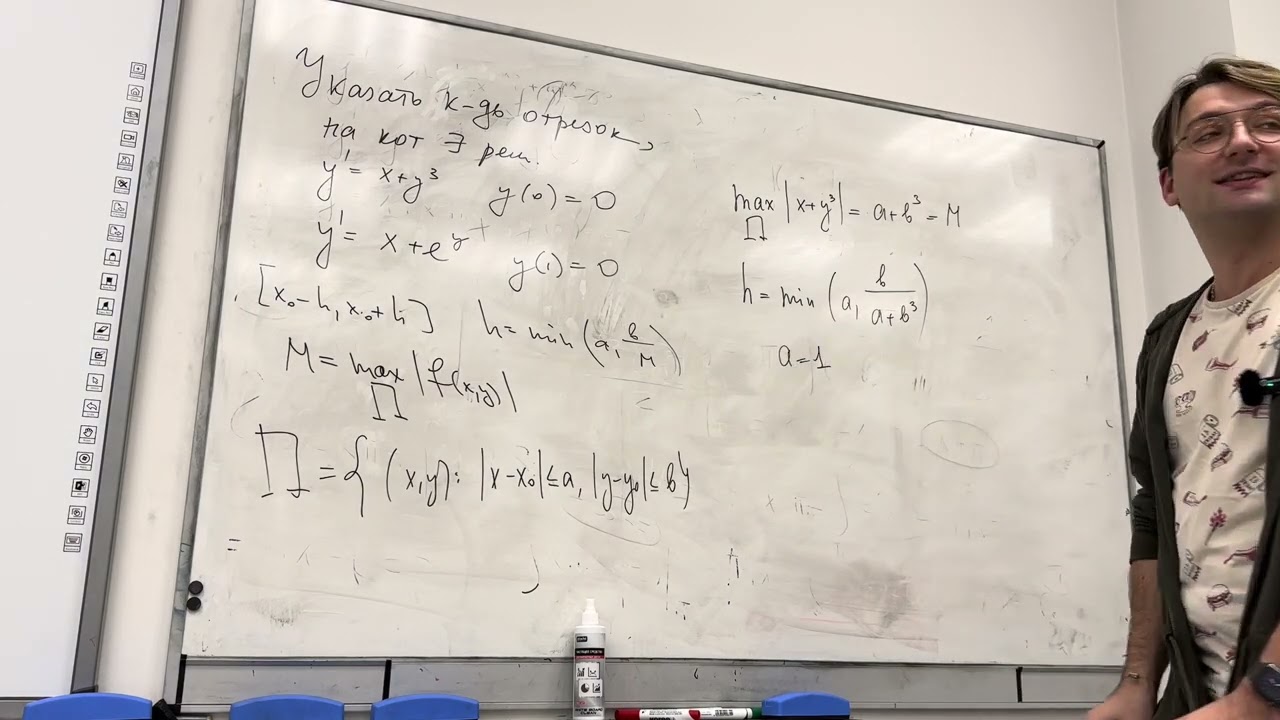 Указать к-дь отрезок,
на кот ∃ реш.
y' = x+y³ y(0) = 0
y' = x+e^y y(1) = 0
[x₀-h, x₀+h] h = min(a, b/M)
M = max |f(x,y)|
Π
Π = { (x,y): |x-x₀| ≤ a, |y-y₀| ≤ b}
max |x+y³| = a+b³ = M
Π
h = min (a, b/(a+b³))
a=1